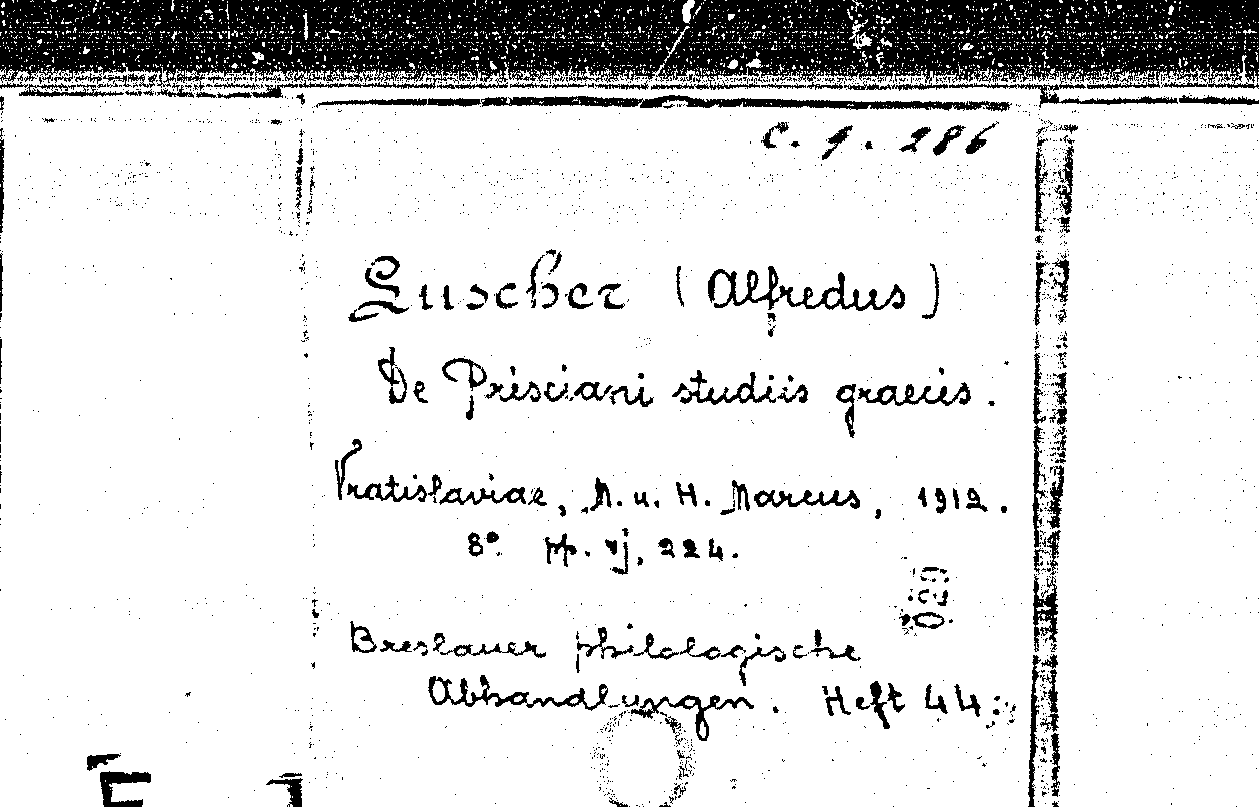 C. 9. 286
Luscher (Alfredus)
De Prisciani studiis graecis.
Vratislaviae, M. u. H. Marcus, 1912.
8º pp. vj, 224.
Breslauer philologische
Abhandlungen. Heft 44.